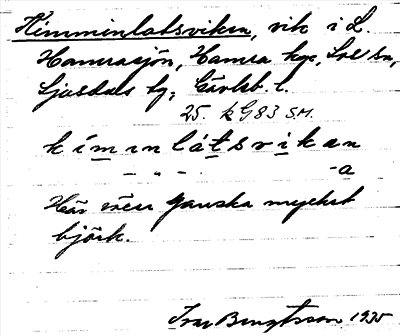 Kimminlatsviken, vik i L.
Hamrasjön, Hamra kpg, Los sn,
Ljusdals tg, Gävleb. l.
25. k G 83 S.M.
k í m ı n l á t s v i k a n
– „ – -a
Här växer ganska mycket
björk.
Ivar Bengtsson 1935